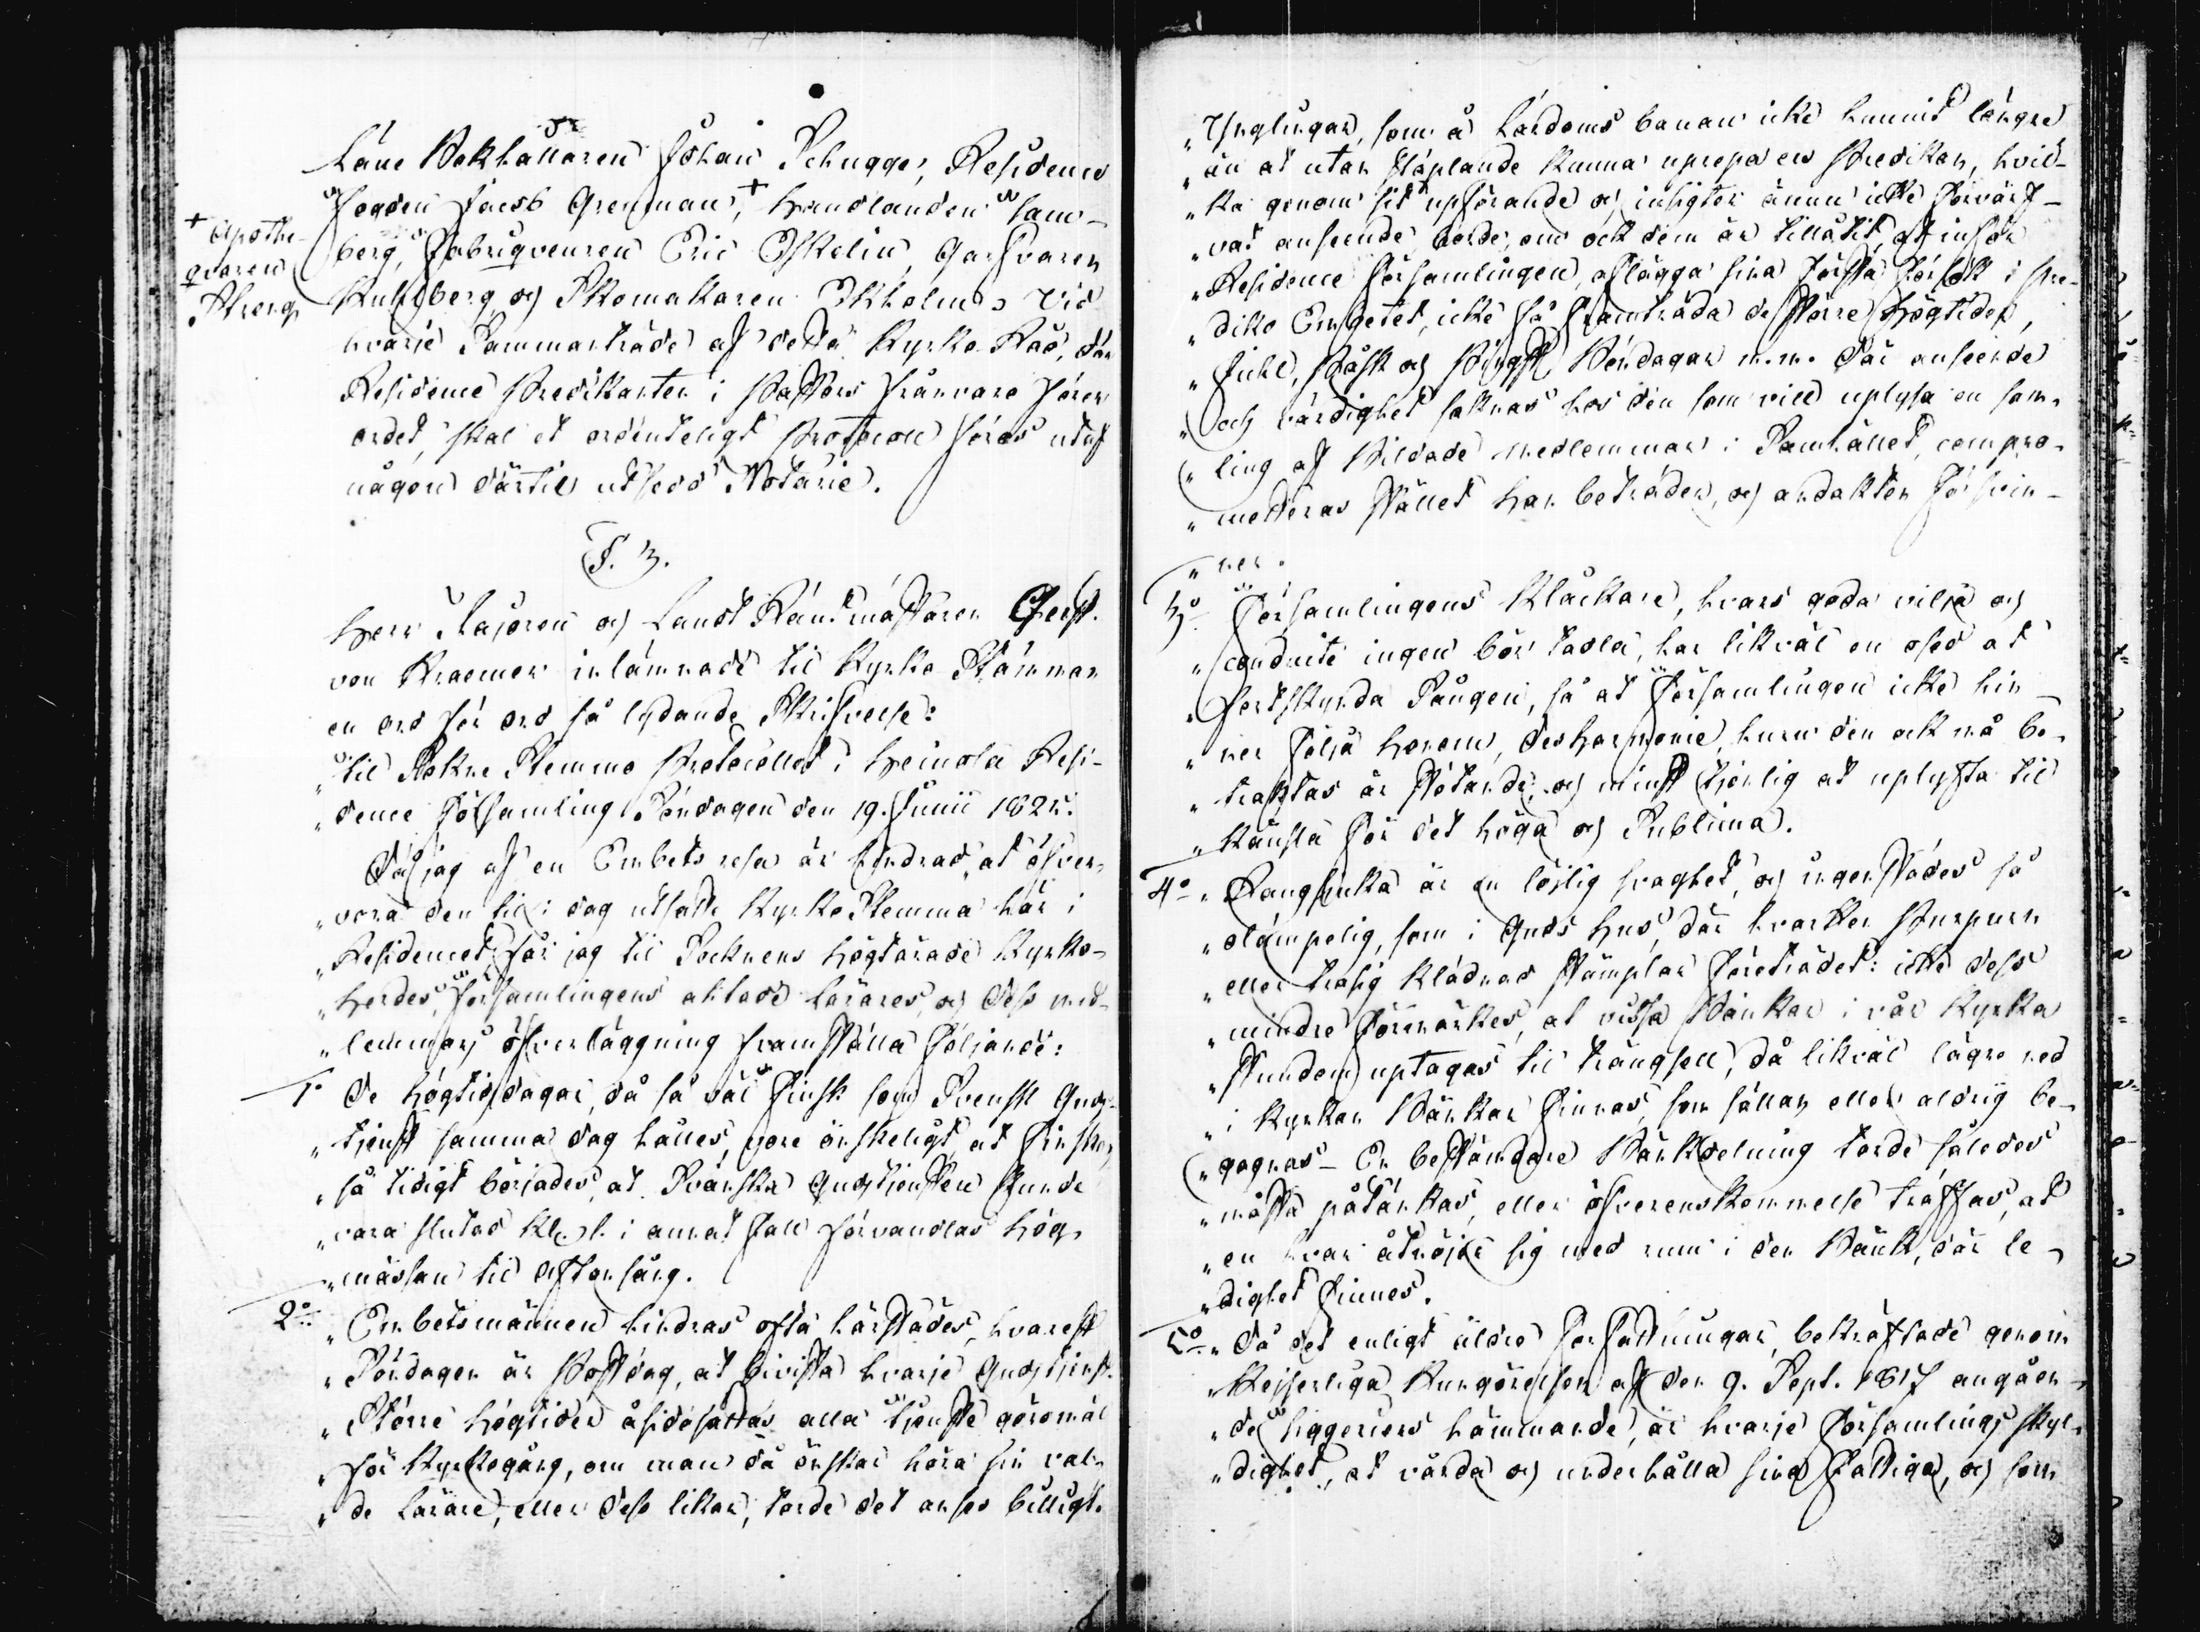 Läne Bokhållaren Johan Schugge, Residence
Fogden Jacob Grenman, + Handlanden Sam-
+ Apothe-
qvaren
Strengh
berg, Fabriqveuren Eric Eskelin, Garfvaren
Kullberg och Skomakaren Ekholm, vid
hvarje Sammanträde af detta Kyrko Råd, där
Residence Predikanten i Pastors frånvaro förer
ordet, skal et ordenteligt Protocoll föras utaf
någon därtil utsedd Notarie.
§. 3.
Herr Majoren och Landt Räntmästaren Gust.
von Kraemer inlämnade til Kyrko Stämman
en ord för ord så lydande Skrifvelse:
"til Sokne Stemmo Protocollet i Heinola Resi-
"dence Församling Söndagen den 19. Junii 1825.
Då jag af en Embets resa är hindrad, at öfver-
"vara den til i dag utsatte Kyrko Stemma här i
"Residencet, får jag til Socknens högtärade Kyrko-
"herdes, Församlingens aktade Lärares, och Dess med-
"lemmars öfverläggning framställa följande:
1o De högtidsdagar, då så väl Finsk som Svensk Guds-
"tjenst samma dag hålles, vore önskeligt, at Finskan
"så tidigt börjades, at Svänska Gudstjensten kunde
"vara slutad Kl. 1. i annat fall förvandlas Hög-
"mässan til Aftonsång.
2o "Embetsmännen hindras ofta härstädes, hvarest
"Söndagen är Postdag, at bivista hvarje Gudstjenst.
"Större högtider åsidosättas alla tjenste göromål
"för Kyrkogång, om man då önskar höra sin val-
"de Lärare, eller Dess likar, torde det anses billigt.
"Ynglingar, som å Lärdoms banan icke hunnit längre
"än at utan stapplande kunna uprepa en Predikan, hvil-
"ka genom sit upförande och insigter ännu icke förvärf-
"vat anseende, borde, om ock dem är tillåtit, at inför
"Residence Församlingen, aflägga sina första försök i Pre-
"diko Embetet, icke få framträda de större Högtider,
"Juhl, Påsk och Pingst, Böndagar m.m. där anseende
"och värdighet saknas hos den som vill uplysa en sam-
"ling af bildade medlemmar i Samhället, compro-
"metteras stället han beträder, och andakten försvin-
"ner.
3o "Församlingens Klåckare, hvars goda vilja och
"conduite ingen bör tadla, har likväl en osed at
"fortskynda Sången, så at Församlingen icke hin-
"ner följa honom, desharmonie, huru den ock må be-
"traktas är stötande, och minst tjenlig at uplyfta til
"känsla för det höga och Sublima.
4o "Rangsjuka är en löjlig svaghet, och ingenstädes så
"olämpelig, som i Guds Hus, där hvarken Purpurn
"eller trasig klädnad stämplar företrädet: icke dess
"mindre förmärkes, at vissa Bänkar i vår Kyrka
"stundom uptagas til trängsell, då likväl lägre ned
"i Kyrkan Bänkar finnas, som sällan eller aldrig be-
"gagnas - En bestämdare Bänkdelning torde således
"måsta påtänkas, eller öfverenskommelse träffas, at
"en hvar åtnöjer sig med rum i den Bänk, där le-
"dighet finnes.
5o "Då det enligt äldre Författningar, bekräftade genom
"Kejserliga Kungörelsen af den 9. Sept. 1817 angåen-
"de tiggeriers hämmande, är hvarje Församlings skyl-
"dighet, at vårda och underhålla sina Fattiga, och som